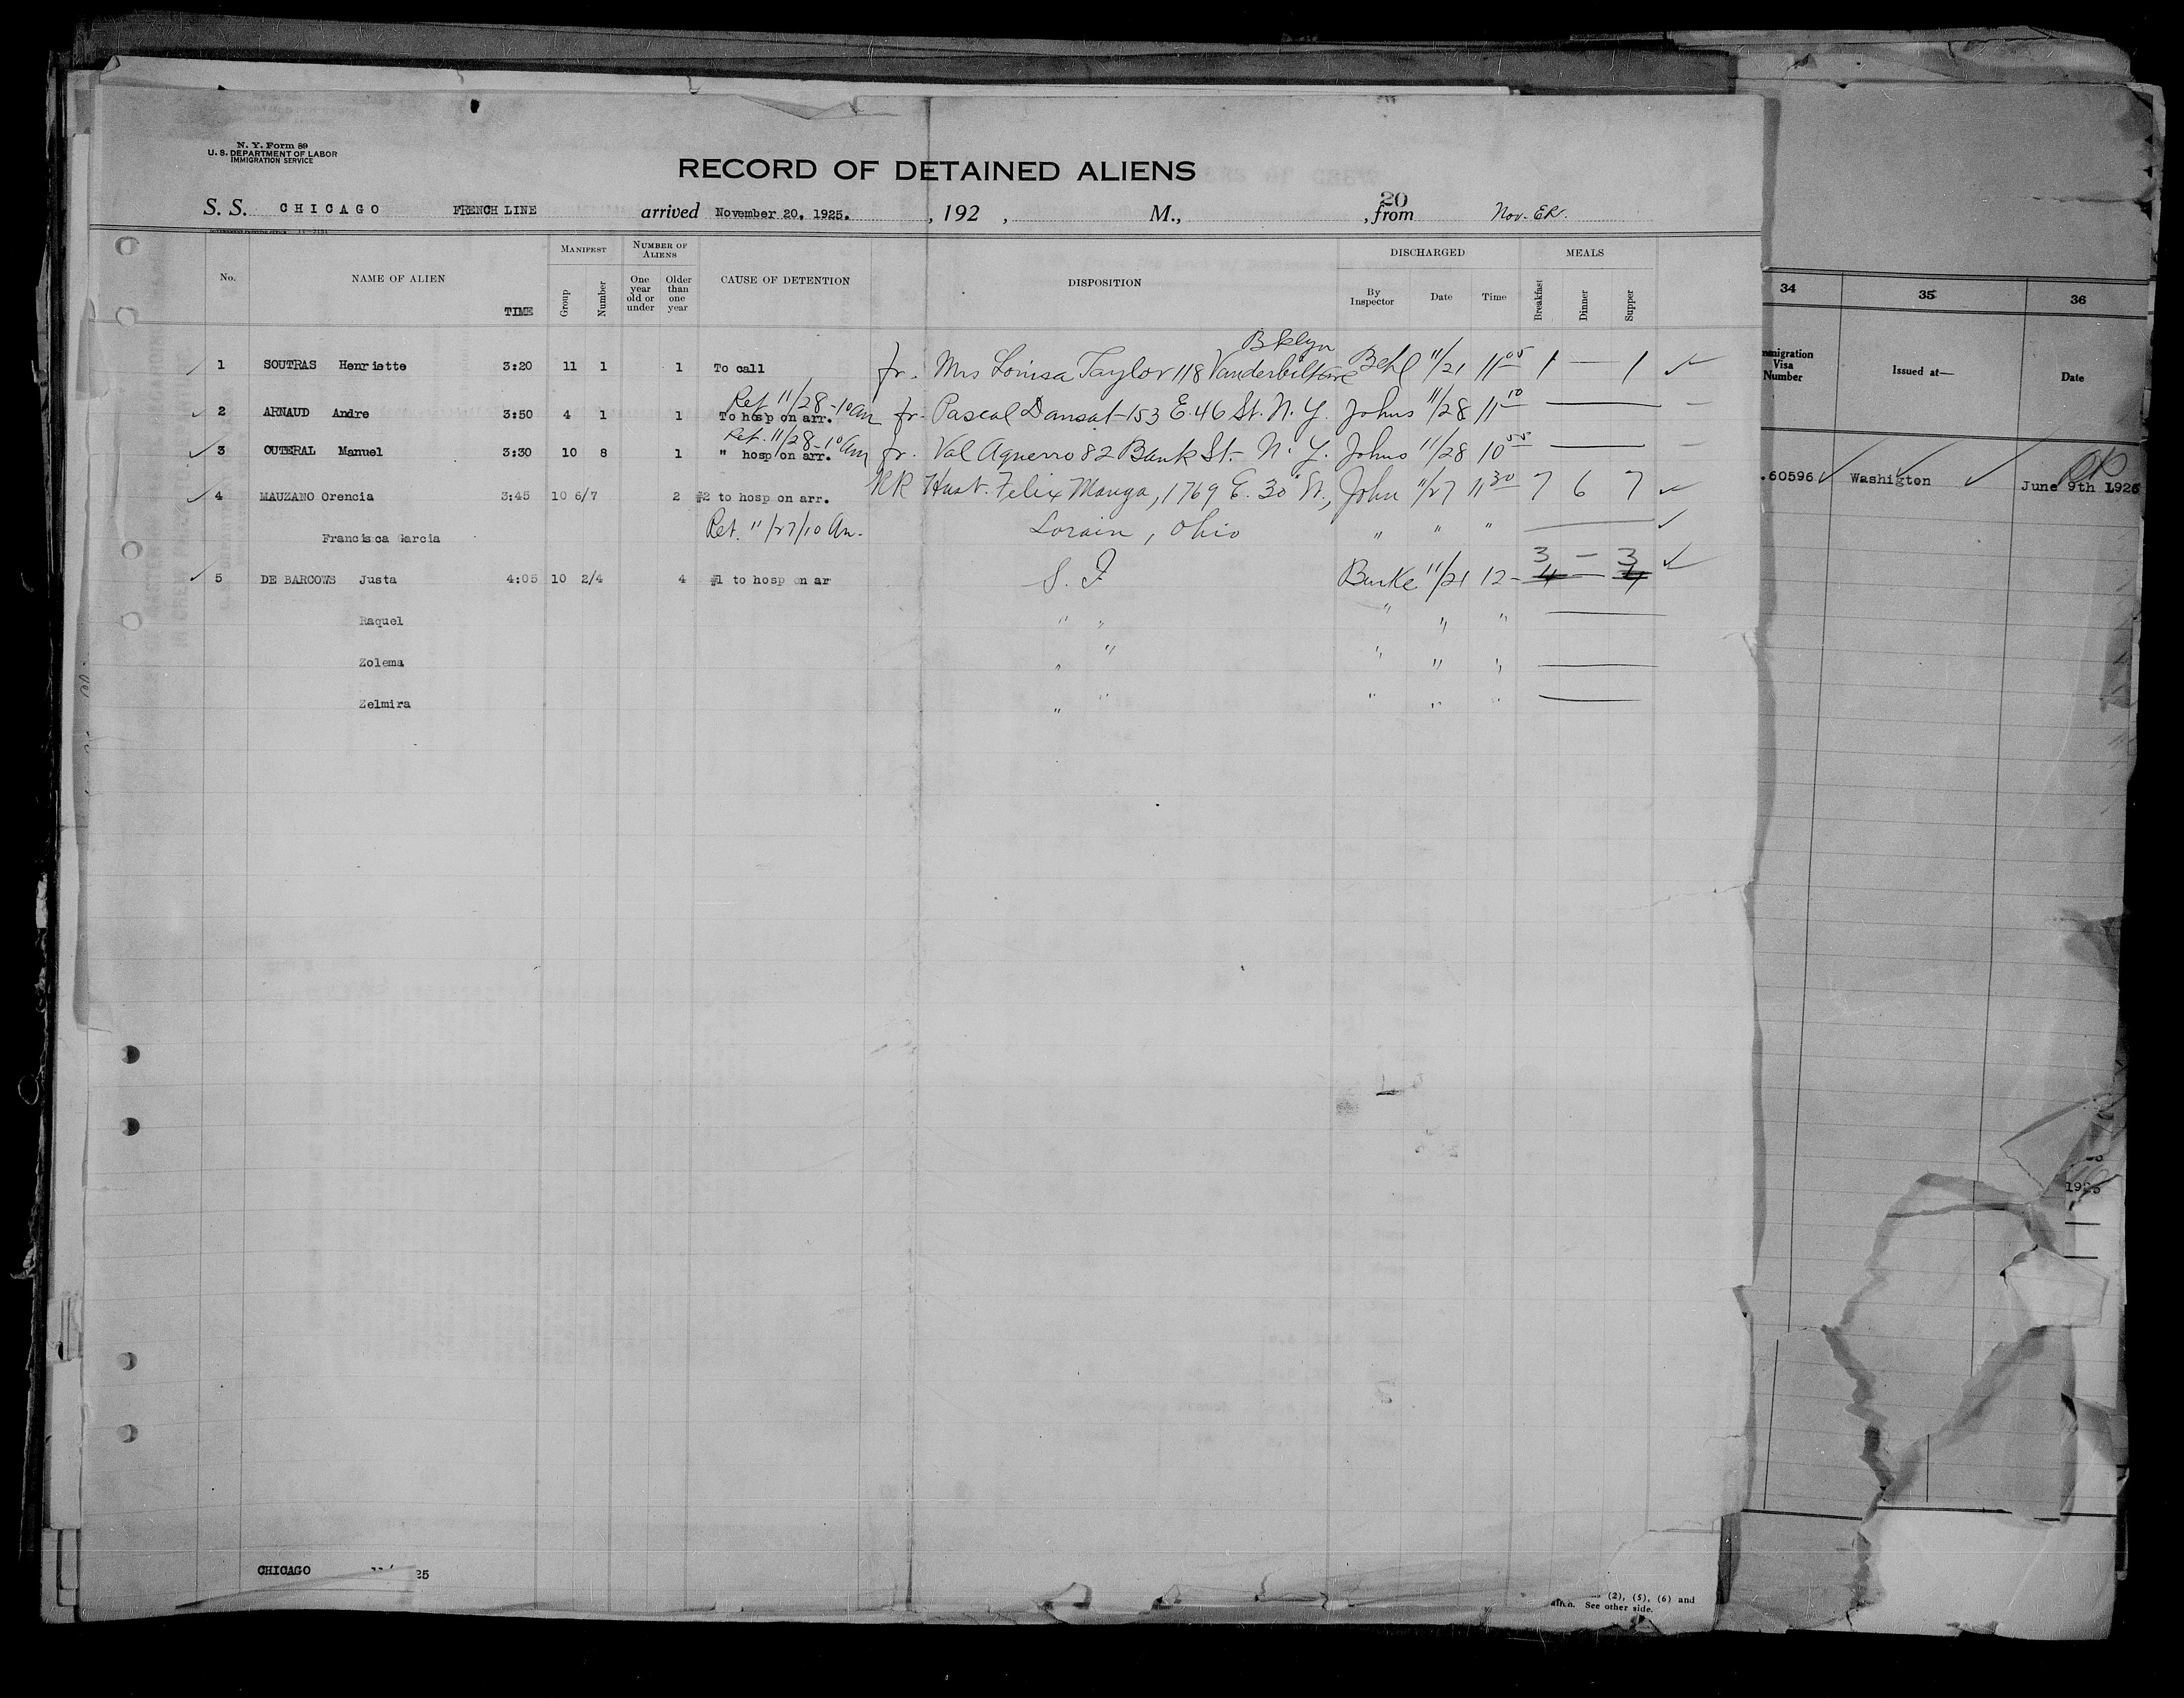 N. Y. Form 89
U. S. DEPARTMENT OF LABOR
IMMIGRATION SERVICE
RECORD OF DETAINED ALIENS
S. S. CHICAGO FRENCH LINE arrived November 20, 1925. , 192 , M., , from 20 Nov. ER.
No. NAME OF ALIEN TIME MANIFEST Group Number NUMBER OF ALIENS One year old or under Older than one year CAUSE OF DETENTION DISPOSITION DISCHARGED By Inspector Date Time MEALS Breakfast Dinner Supper
Bklyn
1 SOUTRAS Henriette 3:20 11 1 1 To call fr. Mrs Louisa Taylor 118 Vanderbilt ave 11/21 11 05 1 — 1
Ret 11/28 - 10 am
2 ARNAUD Andre 3:50 4 1 1 To hosp on arr. fr. Pascal Dansat - 153 E. 46 St. N. Y. Johns 11/28 11 10 —
Ret. 11/28 - 10 am
3 OUTERAL Manuel 3:30 10 8 1 " hosp on arr. fr. Val Aguerro 82 Bank St. N. Y. Johns 11/28 10 55 —
4 MAUZANO Orencia 3:45 10 6/7 2 #2 to hosp on arr. RR Husb. Felix Manga, 1769 E. 30" St., John 11/27 11 30 7 6 7
Francisca Garcia Ret. 11/27/10 Am. Lorain, Ohio " " "
3 — 3
5 DE BARCOWS Justa 4:05 10 2/4 4 #1 to hosp on ar S. I. Burke 11/21 12 - 4 — 4
Raquel " " " " "
Zolema " " " " "
Zelmira " " " " "
CHICAGO 25
(2), (5), (6) and
alien. See other side.
34 35 36
Immigration Visa Number Issued at— Date
.60596 Washigton June 9th 1925
1925